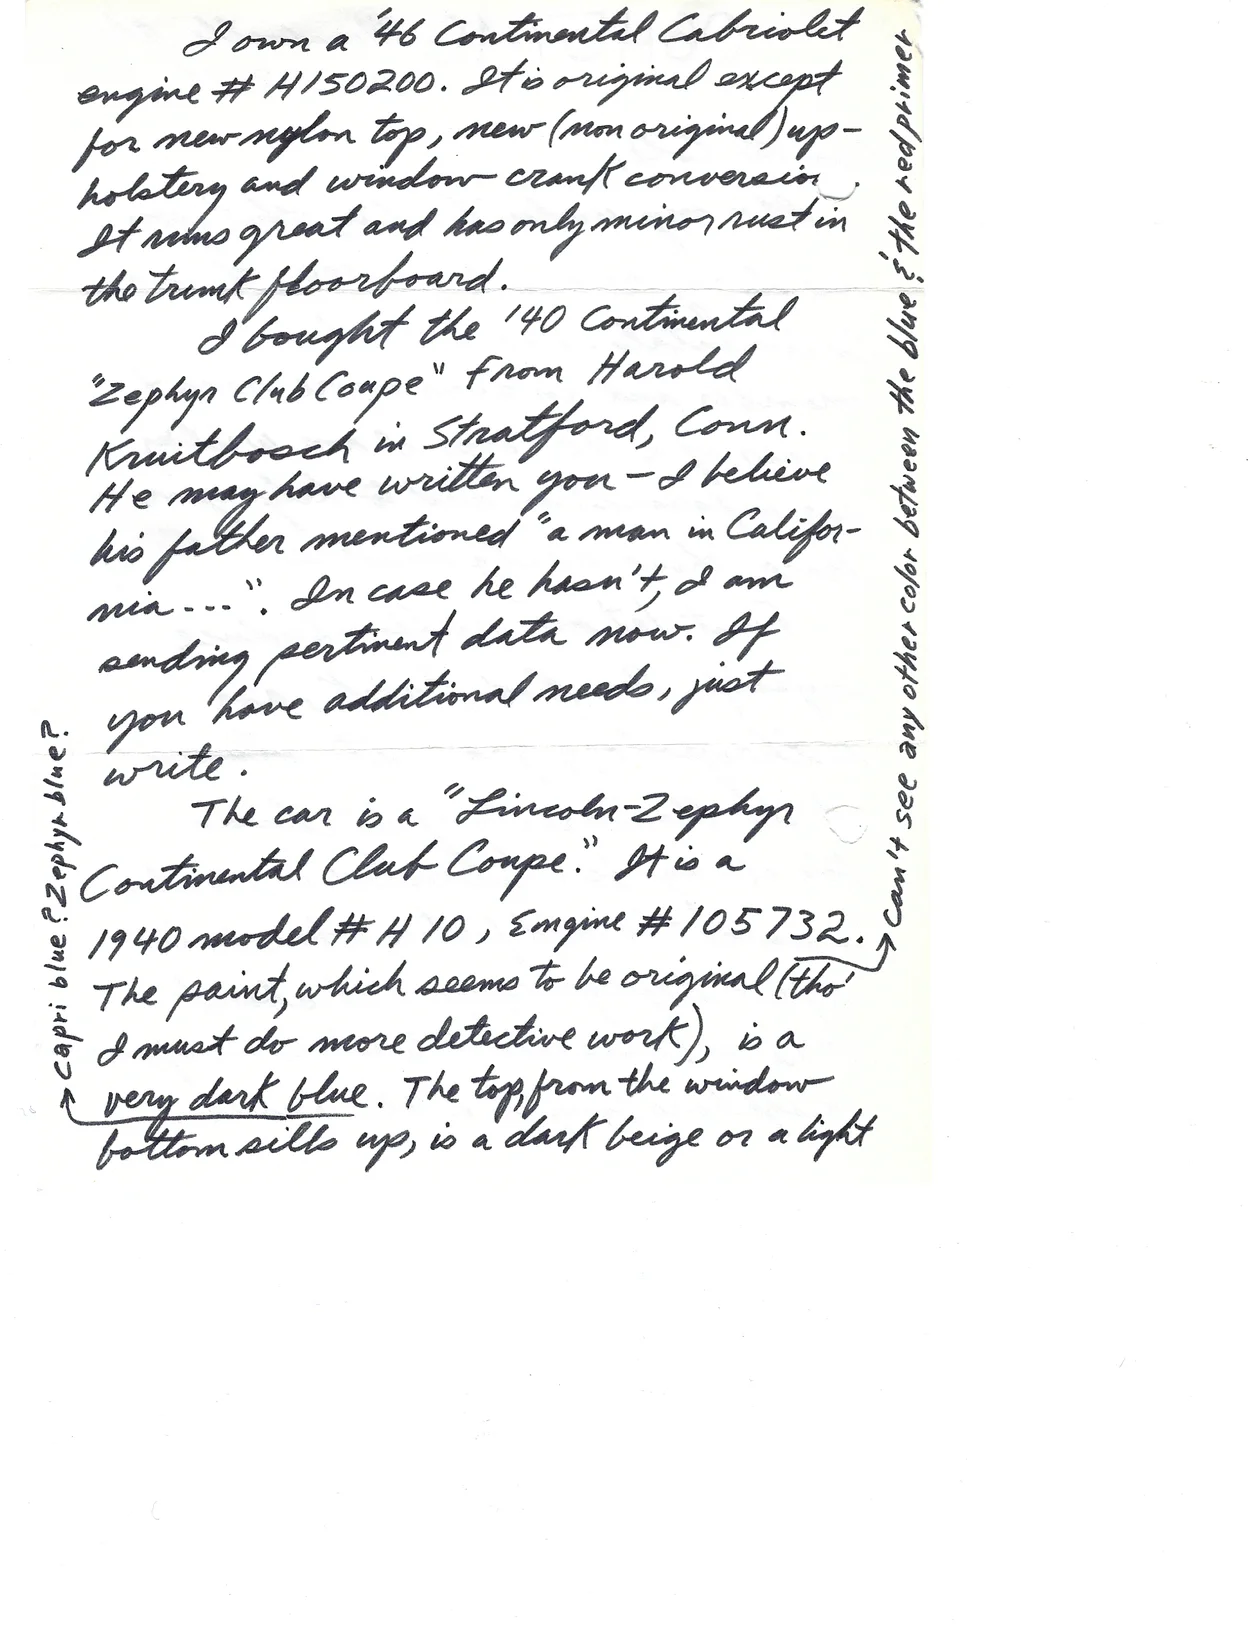 I own a '46 Continental Cabriolet
engine # H150200. It is original except
for new nylon top, new (non original) up-
holstery and window crank conversion.
It runs great and has only minor rust in
the trunk floorboard.
I bought the '40 Continental
"Zephyr Club Coupe" from Harold
Kruitbosch in Stratford, Conn.
He may have written you – I believe
his father mentioned "a man in Califor-
nia - - -". In case he hasn't, I am
sending pertinent data now. If
you have additional needs, just
write.
The car is a "Lincoln-Zephyr
Continental Club Coupe." It is a
1940 model # H 10, Engine # 105732.
The paint, which seems to be original (tho'
I must do more detective work), is a
very dark blue. The top, from the window
bottom sills up, is a dark beige or a light
Capri blue? Zephyr blue?
Can't see any other color between the blue & 'the red primer